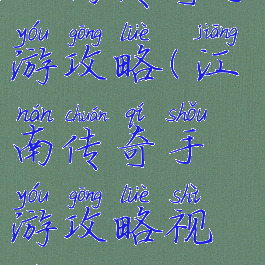 yóu gōng lüè jiāng
游攻略(江
nán chuán qí shǒu
南传奇手
yóu gōng lüè shì
游攻略视